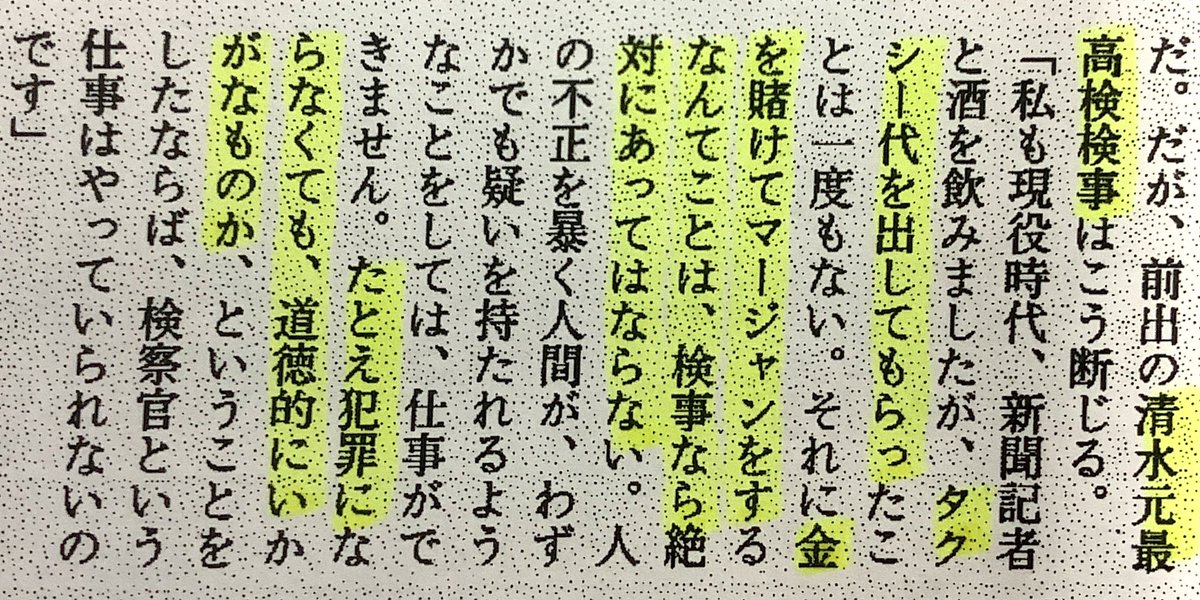 だ。だが、前出の清水元最
高検検事はこう断じる。
「私も現役時代、新聞記者
と酒を飲みましたが、タク
シー代を出してもらったこ
とは一度もない。それに金
を賭けてマージャンをする
なんてことは、検事なら絶
対にあってはならない。人
の不正を暴く人間が、わず
かでも疑いを持たれるよう
なことをしては、仕事がで
きません。たとえ犯罪にな
らなくても、道徳的にいか
がなものか、ということを
したならば、検察官という
仕事はやっていられないの
です」